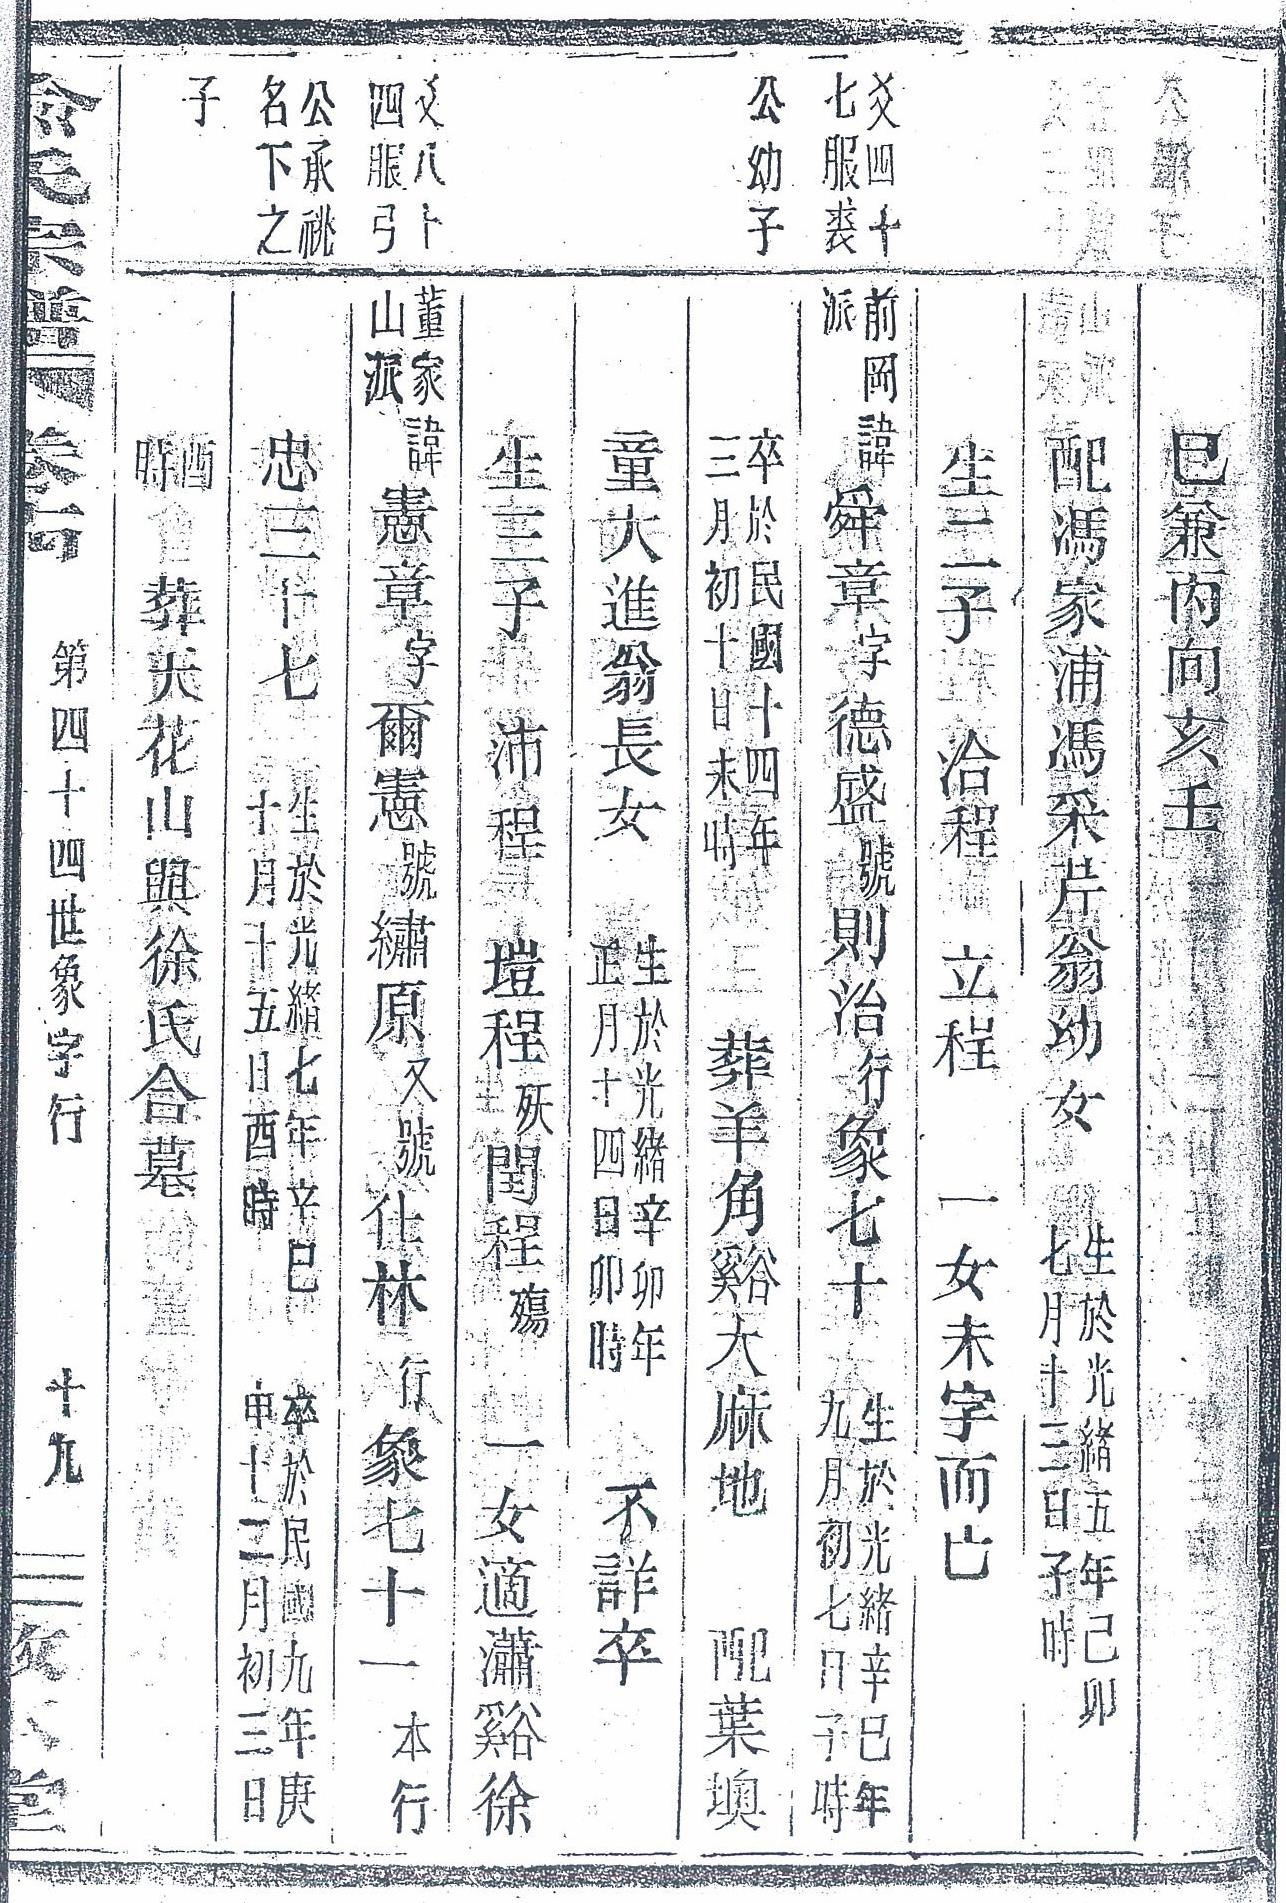 巳兼丙向亥壬
配馮家浦馮采芹翁幼女 生於光緒五年己卯七月十三日子時
生二子 洽程 立程 一女未字而亡
爻四十七服裘
公幼子
前岡派
諱舜章字德盛號則治行象七十 生於光緒辛巳年九月初七日子時
卒於民國十四年三月初十日未時 葬羊角谿大麻地 配葉墺
童大進翁長女 生於光緒辛卯年正月十四日卯時 不詳卒
生三子 沛程 塏程殀 閏程殤 一女適瀟谿徐
爻八卜四服弓
公承祧名下之
子
董家山派
諱憲章字爾憲號繡原又號仕林行象七十一 本行
忠三十七 生於光緒七年辛巳十月十五日酉時 卒於民國九年庚申十二月初三日
酉時 葬大花山與徐氏合墓
俞氏宗譜 第四十四世象字行 十九